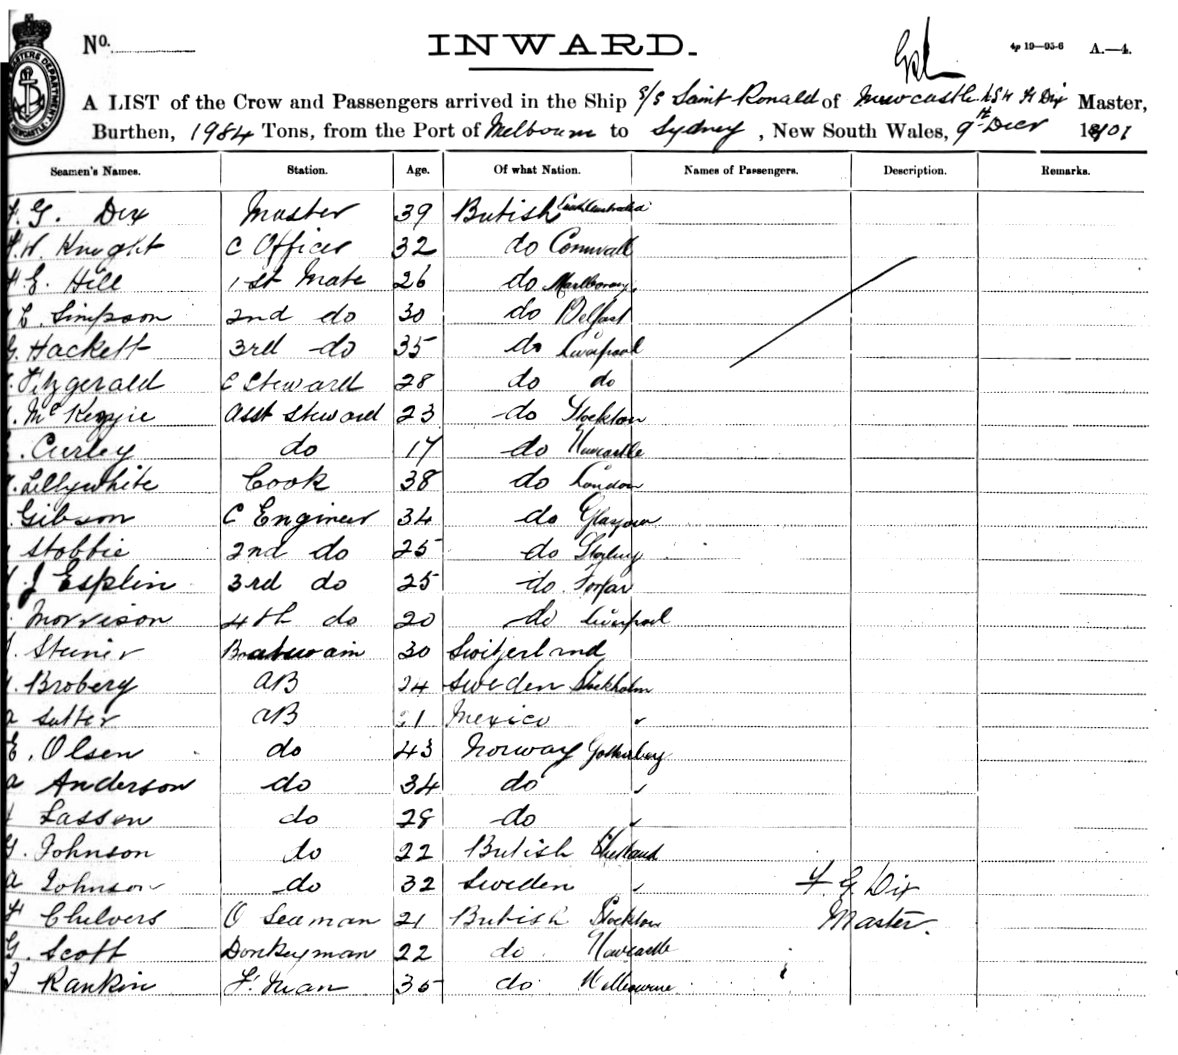 No.
INWARD.
4p 19—95-6 A.—4.
A LIST of the Crew and Passengers arrived in the Ship S/S Saint Ronald of Newcastle NSW F G Dix Master,
Burthen, 1984 Tons, from the Port of Melbourne to Sydney, New South Wales, 9th Decr 1901
Seamen's Names. Station. Age. Of what Nation. Names of Passengers. Description. Remarks.
F. G. Dix Master 39 British
H. Knight C Officer 32 do Cornwall
E. Hill 1st Mate 26 do
Simpson 2nd do 30 do Belfast
G. Hackett 3rd do 35 do Liverpool
Fitzgerald C Steward 28 do do
McKenzie Asst Steward 23 do Stockton
Curley do 17 do Newcastle
Lillywhite Cook 38 do London
Gibson C Engineer 34 do Glasgow
Stobbie 2nd do 25 do
J Esplin 3rd do 25 do Forfar
Morrison 4th do 20 do Liverpool
Steiner Boatswain 30 Switzerland
Broberg AB 24 Sweden Stockholm
a Sutter AB 1 Mexico
E. Olsen do 43 Norway
a Anderson do 34 do
Lassen do 28 do
G. Johnson do 22 British Shetland
a Johnson do 32 Sweden F G Dix
Chelvers O Seaman 21 British Stockton Master.
G. Scott Donkeyman 22 do Newcastle
Rankin F'man 35 do Melbourne